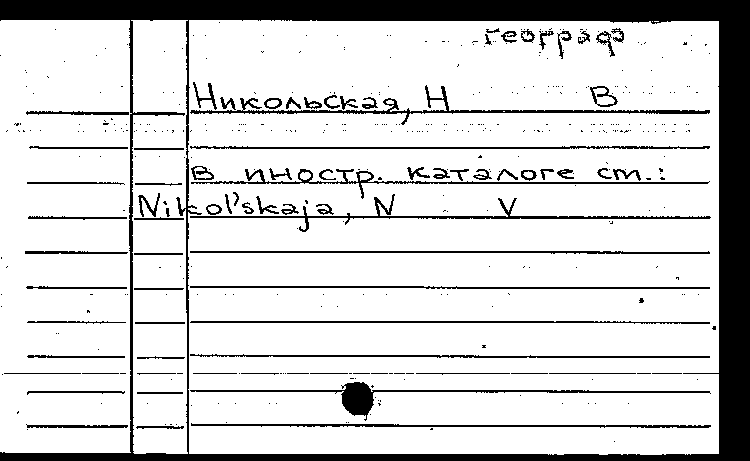 географ
Никольская, Н В
В иностр. каталоге ст.:
Nikol'skaja, N V